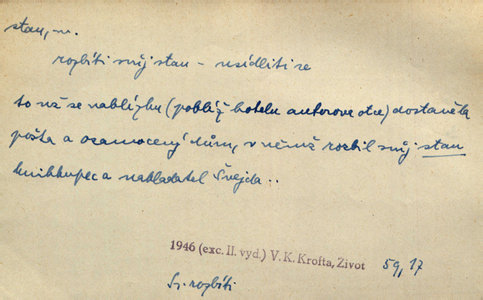 stan, m.
rozbíti svůj stan - usídliti se
to už se nablízku (poblíž hotelu autorova otce) dostavěla
pošta a osamocený dům, v němž rozbil svůj stan
knihkupec a nakladatel Švejda ..
1946 (exc. II. vyd.) V. K. Krofta, Život 59, 17
Sr. rozbíti